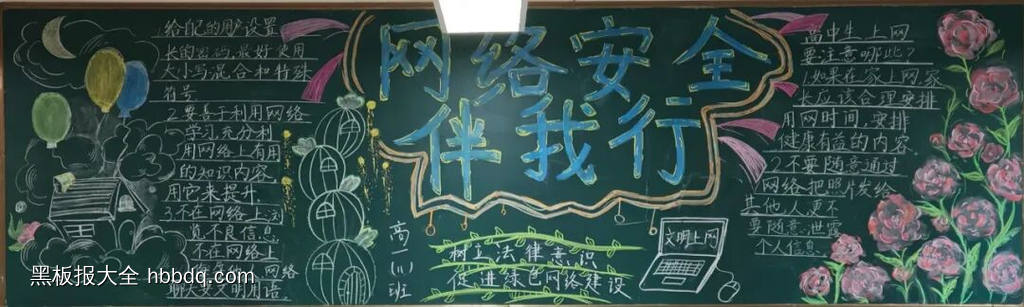 给自己的用户设置
长的密码,最好使用
大小写混合和特殊
符号
2.要善于利用网络
学习,充分利
用网络上有用
的知识内容
用它来提升
3.不在网络上浏
览不良信息
不在网络上
网络
聊天要文明用语
网络安全
伴我行
高一(11)班
树立法律意识
促进绿色网络建设
文明上网
高中生上网
要注意哪些?
1.如果在家上网,家
长应该合理安排
用网时间,安排
健康有益的内容
2.不要随意通过
网络把照片发给
其他人,更不
要随意泄露
个人信息
黑板报大全 hbbdq.com